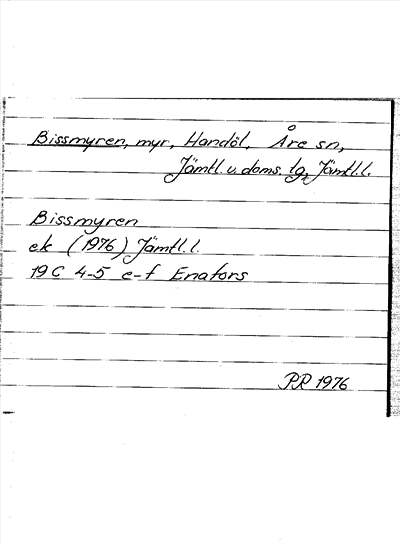 Bissmyren, myr, Handöl, Åre sn,
Jämtl. v. doms. lg, Jämtl.l.
Bissmyren
ek (1976) Jämtl.l.
19 C 4-5 e-f Enafors
PR 1976